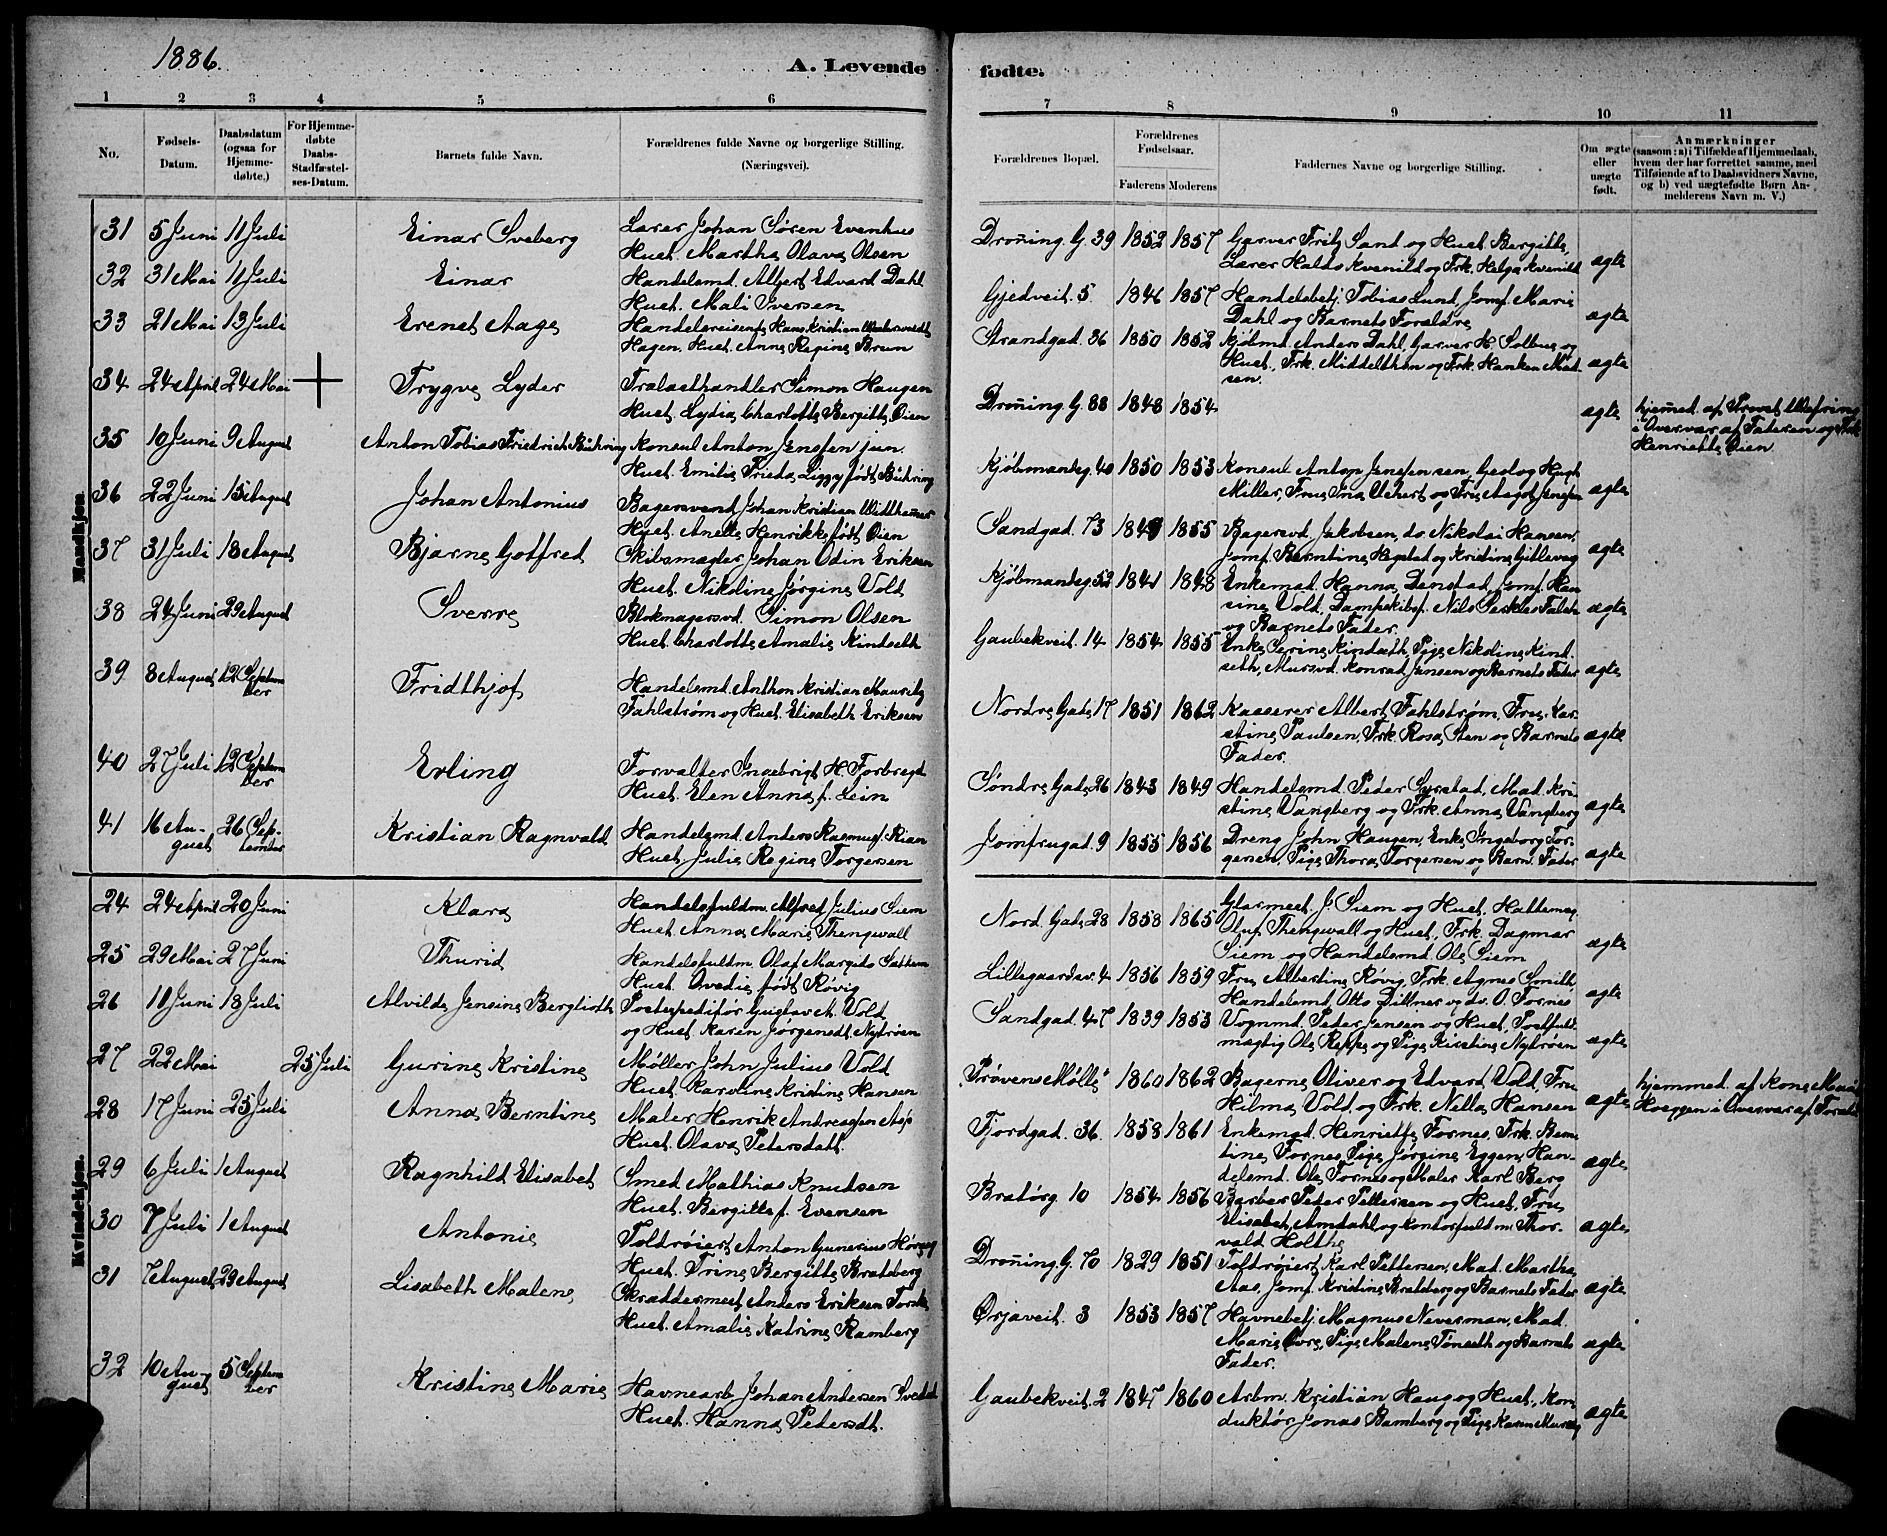 1886.
A. Levende
1 2 3 4 5 6
No.
Fødsels-
Datum.
Daabsdatum
(ogsaa for
Hjemme-
døbte.)
For Hjemme-
døbte
Daabs-
Stadfæstel-
ses-Datum.
Barnets fulde Navn.
Forældrenes fulde Navne og borgerlige Stilling.
(Næringsvei).
Mandkjøn.
31 5 Juni 11 Juli Einar Sveberg Lærer Johan Søren Evenhus
Hust. Martha Olava Olsen
32 31 Mai 11 Juli Einar Handelsmd. Albert Edvard Dahl
Hust. Mali Iversen
33 21 Mai 13 Juli Erenst Aage Handelsreisende Hans Kristian
Hagen. Hust. Anna Regine Brun
34 24 April 24 Mai Trygve Lyder Trælasthandler Simon Haugen
Hust. Lydia Charlotte Bergitte Øien
35 10 Juni 9 August Anton Tobias Friedrich Bühring Konsul Anton Jenssen jun.
Hust. Emilie Frieda Liggy født Bühring
36 22 Juni 15 August Johan Antonius Bagersvend Johan Kristian
Hust. Anette Henrikke født Øien
37 31 Juli 18 August Bjarne Gotfred Skibsmægler Johan Odin Eriksen
Hust. Nikoline Jørgine Vold
38 24 Juni 29 August Sverre Blokmagersvd. Simon Olsen
Hust. Charlotte Amalie Kindseth
39 8 August 12 Septem
ber Fridthjof Handelsmd. Anthon Kristian Mauritz
Fahlstrøm og Hust. Elisabeth Eriksen
40 27 Juli 12 Septem
ber Erling Forvalter Ingebrigt H. Forbregd
Hust. Elen Anna f. Lein
41 16 Au-
gust 26 Sep-
tember Kristian Ragnvald Handelsmd. Anders Rasmus. Rian
Hust. Julie Regine Torgersen
Kvindekjøn.
24 24 April 20 Juni Klara Handelsfuldm. Alfred Julius Siem
Hust. Anna Marie Thengwall
25 29 Mai 27 Juni Thurid Handelsfuldm. Olaf Margido Sættem
Hust. Ovedie født Røvig
26 11 Juni 18 Juli Alvilde Jensine Berglioth Postexpeditør Gustav A. Vold
og Hust. Karen Jørgensdt. Nytrøen
27 22 Mai 25 Juli Gurine Kristine Møller John Julius Vold
Hust. Karoline Kristine Hansen
28 17 Juni 25 Juli Anna Berntine Maler Henrik Andreassen Asp
Hust. Olava Petersdatt.
29 6 Juli 1 August Ragnhild Elisabet Smed Mathias Knudsen
Hust. Bergitte f. Evensen
30 7 Juli 1 August Antonie Toldrøiert Anton Gunerius
Hust. Trine Bergitte Bratsberg
31 7 August 29 August Lisabeth Malene Skræddermest Anders Eriksen
Hust. Amalie Katrine Ramberg
32 10 Au-
gust 5 Septem
ber Kristine Marie Havnearb Johan Andersen
Hust. Hanna Petersdt.
fødte.
7 8 9 10 11
Forældrenes Bopæl.
Forældrenes
Fødselsaar.
Faderens Moderens
Faddernes Navne og borgerlige Stilling.
Om ægte
eller
uægte
født.
Anmærkninger
(saasom: a) i Tilfælde af Hjemmedaab,
hvem der har forrettet samme, med
Tilføiende af to Daabsvidners Navne,
og b) ved uægtefødte Børn An-
melderens Navn m. V.)
Droning. G. 39 1852 1857 Garver Fritz Sand og Hust Bergitte,
Lærer Halds Kvenild og Frk. Helga Kvenild ægte
Gjedveit. 5. 1846 1857 Handelsbetj. Tobias Lund, Jomf. Marie
Dahl og Barnets Forældre ægte
Strandgad. 36 1850 1852 Kjølmd. Anders Dahl, Garver H. Solbue og
Hust., Frk. Middelthon og Frk. Hanken Mad-
sen. ægte
Droning. G. 88 1848 1854 ægte hjemmed. af Provst
i Overvær af Faderen og Frk
Henriette Øien
Kjøbmandsg. 40 1850 1853 Konsul Anton Jenssen sen., Geolog Hugh
Miller, Fru Ina og Fru Aagot Jenssen ægte
Sandgad. 73 1849 1855 Bagersvd. Jakobsen, do. Nikolai Hansen,
Jomf. Berntine Hegstad og Kristine ægte
Kjøbmandsg. 53 1841 1848 Enkemad. Hanna Denstad, Jomf. Han
sine Vold, Dampskibsf. Nils
og Barnets Fader. ægte
Gaubekveit. 14 1854 1855 Enke Serine Kindseth, Pige Nikoline Kind-
seth, Mursvd. Konrad Jensen og Barnets Fader ægte
Nordre Gade 17 1851 1862 Kasserer Albert Fahlstrøm, Fru Kar-
stine Paulsen, Frk. Rosa Sten og Barnets
Fader. ægte
Søndre Gade 26 1843 1849 Handelsmd. Peder Syrstad, Mad. Kri
stine Vangberg og Frk. Anna Vangberg ægte
Jomfrugad. 9 1855 1856 Dreng John Haugen, Enke Ingeborg Tor-
gersen, Pige Thora Torgersen og Barn. Fader ægte
Nord. Gade 28 1858 1865 Glasmest. J. Siem og Hust, Hattemag.
Oluf Thengwall og Hust, Frk. Dagmar
Siem og Handelsmd. Ole Siem ægte
Lillegaardsv. 4 1856 1859 Fru Albertine Røvig, Frk. Agnes Smith,
Handelsmd. Otto Dittner og do. O. Fornes ægte
Sandgad. 47 1839 1853 Vognmd. Peder Jensen og Hust, Postfuld-
mægtig Ole Reppe og Pige Kirstine Nytrøen ægte
"Prøvens Mølle" 1860 1862 Bagerne Oliver og Edvard Vold, Fru
Hilma Vold og Frk. Nella Hansen ægte hjemmed. af Kone
Hoeggen i Overvær af
Fjordgad. 36. 1858 1861 Enkemad. Henriette Fornes, Frk. Bern
tine Fornes, Pige Jørgine Eggen, Han-
delsmd. Ole Fornes og Maler Karl Berg ægte
Bratørg. 10 1854 1856 Barber Peder Pettersen og Hust, Fru
Elisabet Amdahl og Kontorfuldm. Thor-
vald Holthe ægte
Droning. G. 70 1829 1851 Toldrøiert Karl Pettersen, Mad. Martha
Aas, Jomf. Kristine Bratsberg og Barnets Fader ægte
Ørjaveit. 3 1853 1857 Havnebetj. Magnus Neverman, Mad.
Marie Øvre, Pige Malene Tønseth og Barnets
Fader. ægte
Gaubekveit. 2 1847 1860 Arbm. Kristian Haug og Hust, Kon
duktør Jonas Ramberg og Pige Karen ægte